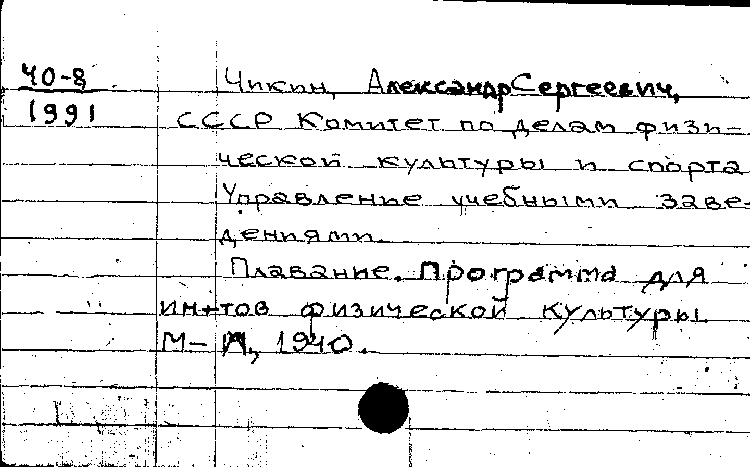 40-8
1991
Чикин, Александр Сергеевич,
СССР Комитет по делам физи-
ческой культуры и спорта
Управление учебными заве-
дениями.
Плавание. Программа для
ин-тов физической культуры.
М-Л, 1940.